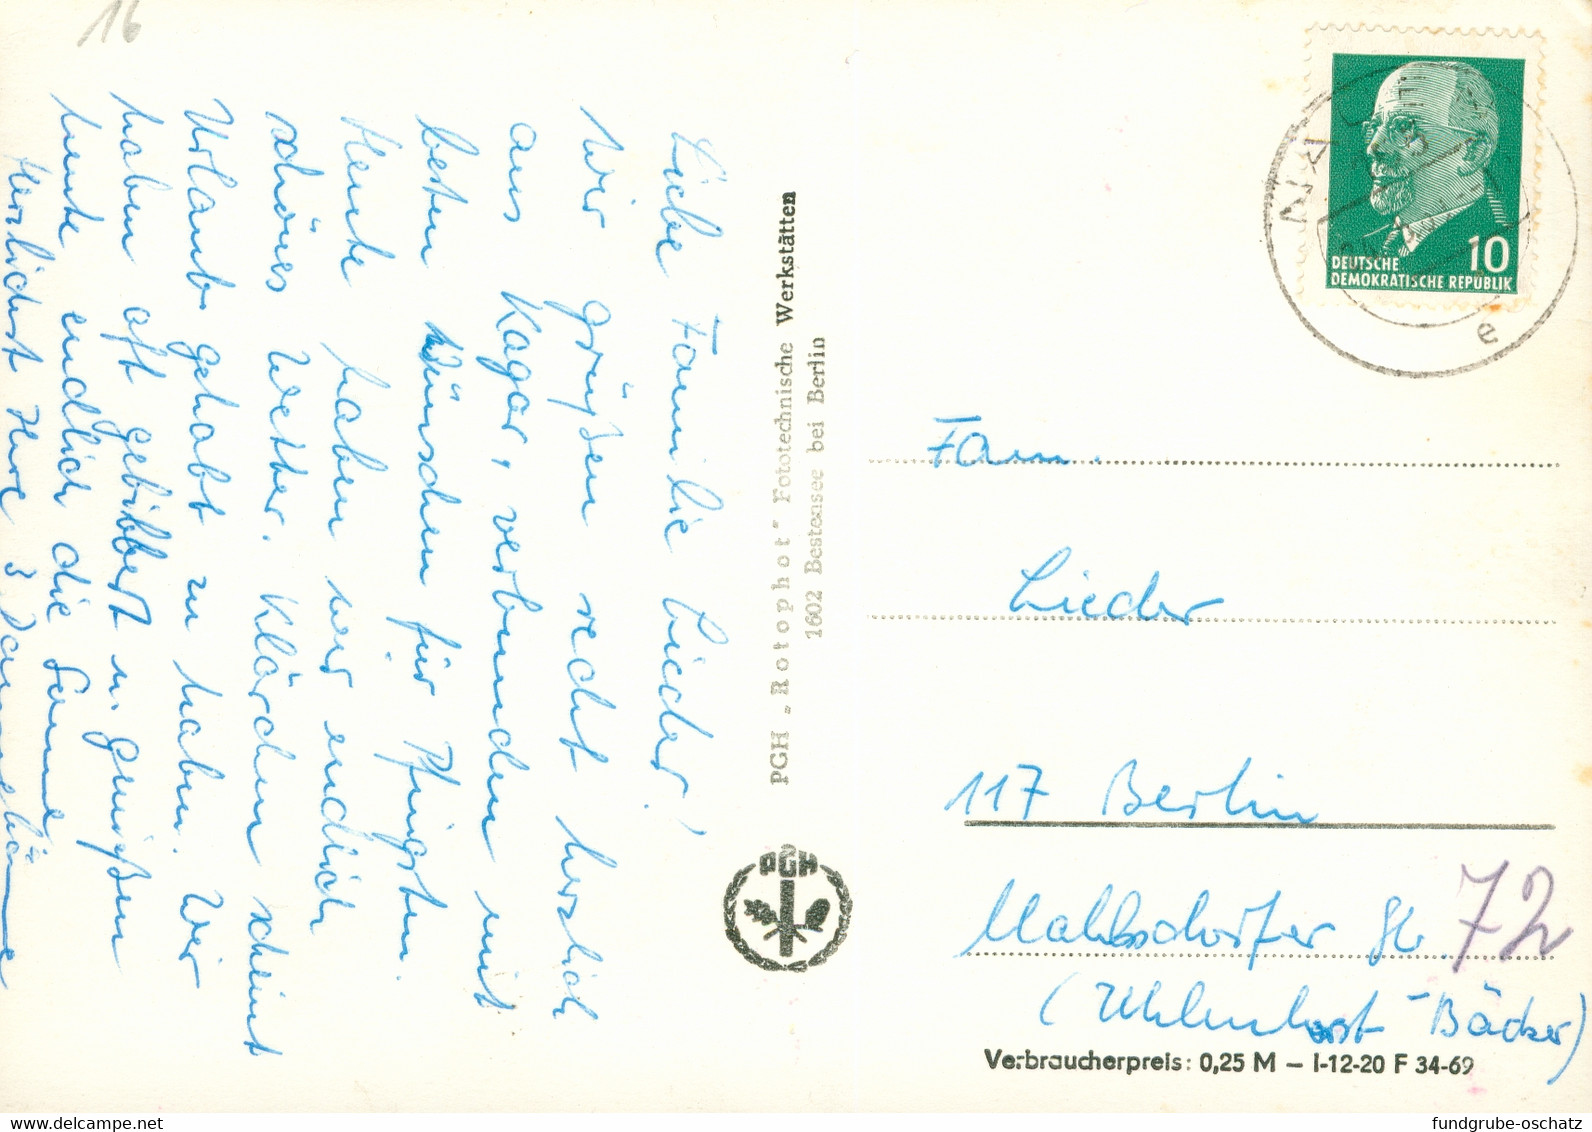 16
Liebe Familie Lieder!
Wir grüßen recht herzlich
aus Kagar, verbunden mit
besten Wünschen für Pfingsten.
Heute haben wir endlich
schönes Wetter. Klärchen scheint
Urlaub gehabt zu haben. Wir
haben oft gebibbert u. genießen
heute endlich die Sonne
Herzlichst Ihre
PGH „Rotophot" Fototechnische Werkstätten
1602 Bestensee bei Berlin
PGH
10
DEUTSCHE
DEMOKRATISCHE REPUBLIK
e
Fam.
Lieder
117 Berlin
Mahlsdorfer Str. 72
(Uhlenhorst - Bäcker)
Verbraucherpreis: 0,25 M – I-12-20 F 34-69
fundgrube-oschatz